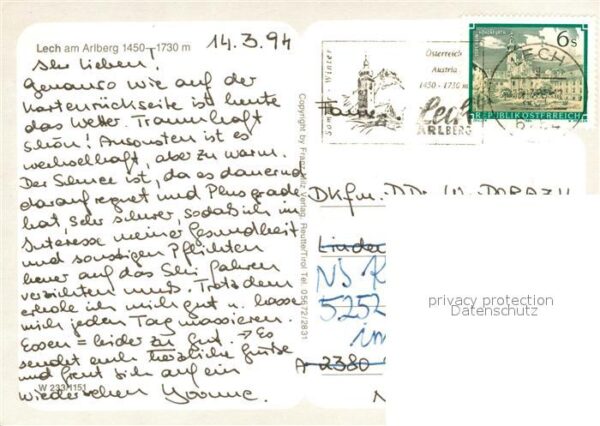 Lech am Arlberg 1450-1730 m
14.3.94
Ihr Lieben!
Genauso wie auf der
Kartenrückseite ist heute
das Wetter. Traumhaft
schön! Ansonsten ist es
wechselhaft, aber zu warm.
Der Schnee ist, da es dauernd
darauf regnet und Plusgrade
hat, sehr schwer, sodaß ich im
Interesse meiner Gesundheit
und sonstigen Pflichten
heuer auf das Ski fahren
verzichten muß. Trotzdem
erhole ich mich gut u. lasse
mich jeden Tag massieren.
Essen = leider zu gut. → Es
sendet euch herzliche Grüße
und freut sich auf ein
Wiedersehen Yvonne.
W 233/1151
Copyright by Franz Milz Verlag, Reutte/Tirol Tel. 05672/2831
SOMMER WINTER
Österreich
Austria
1450-1730 m
Lech
ARLBERG
LECH
6 S
REPUBLIK ÖSTERREICH
Familie
DKfm. DDr.
Linden
NS
5252
im
A 2380
privacy protection
Datenschutz